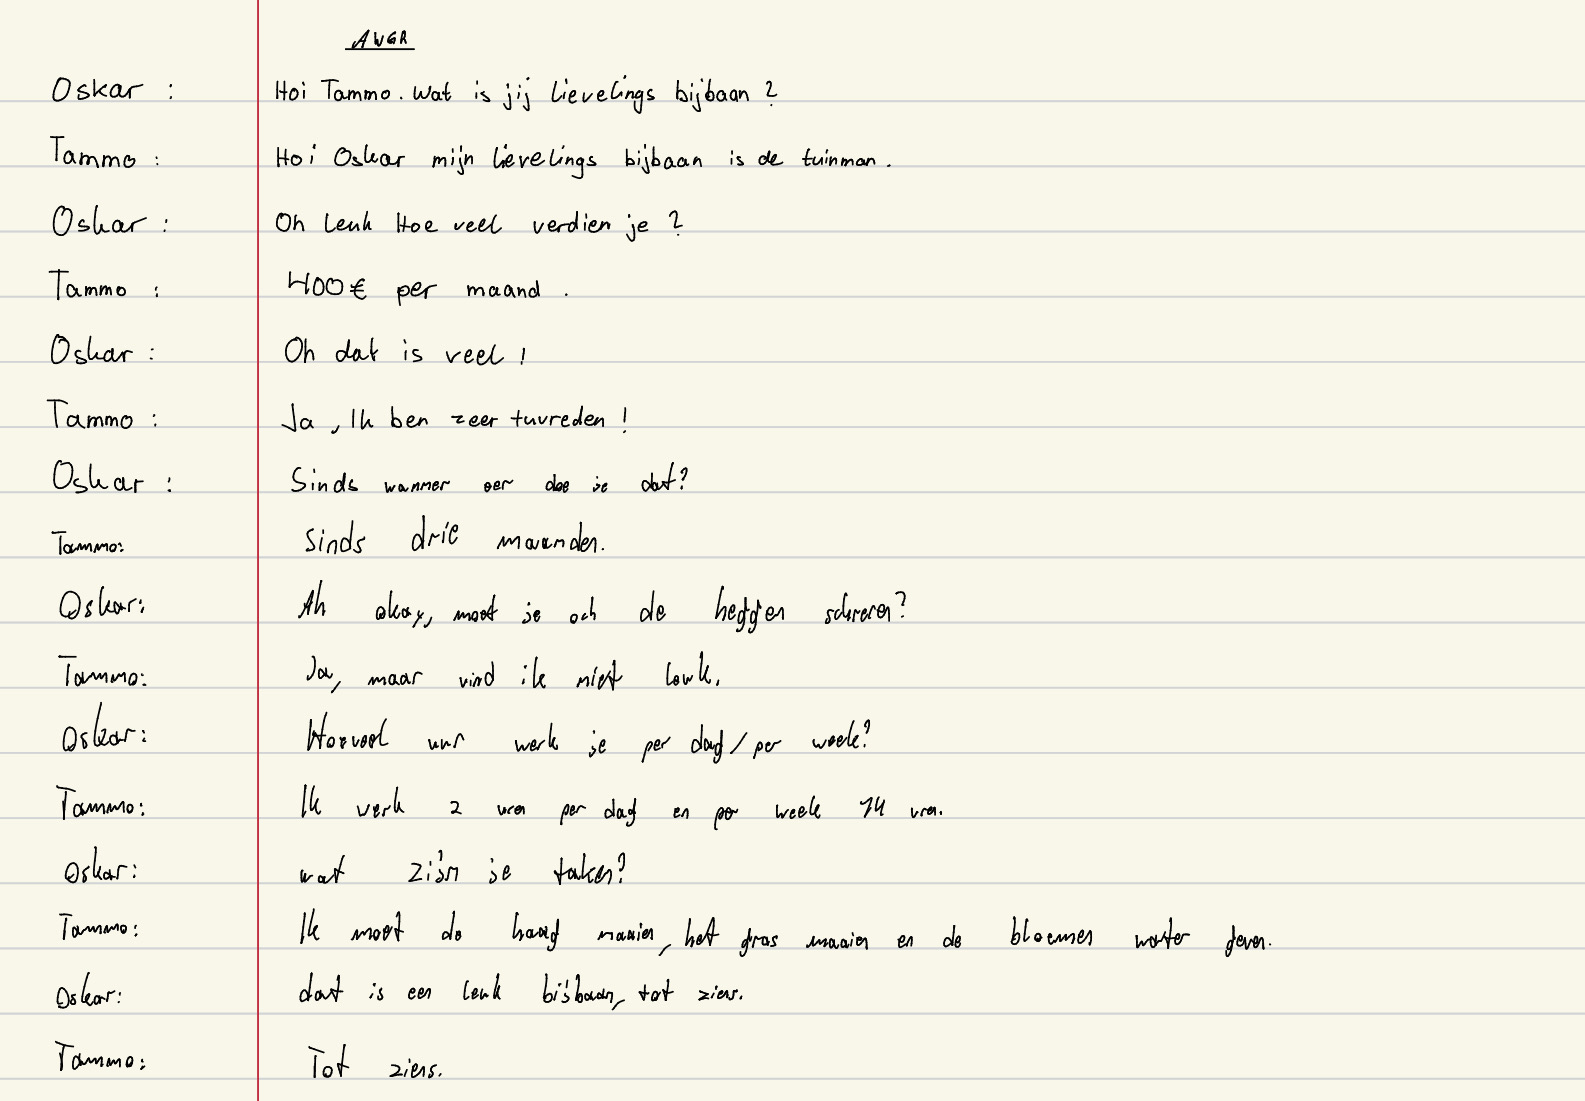 AWGR
Oskar : Hoi Tammo. Wat is jij lievelings bijbaan ?
Tammo : Hoi Oskar mijn lievelings bijbaan is de tuinman.
Oskar : Oh leuk Hoe veel verdien je ?
Tammo : 400€ per maand .
Oskar : Oh dat is veel !
Tammo : Ja , Ik ben zeer tuvreden !
Oskar : Sinds wanmer oer doe je dat?
Tammo: Sinds drie maanden.
Oskar: Ah okay, moet je och de heggen schreren?
Tammo: Ja, maar vind ik niet leuk.
Oskar: Hoeveel uur werk je per dag/per week?
Tammo: Ik werk 2 uren per dag en per week 14 uren.
Oskar: wat zijn je taken?
Tammo: Ik moet de haag maaien, het gras maaien en de bloemen water geven.
Oskar: dat is een leuk bijbaan, tot ziens.
Tammo: Tot ziens.